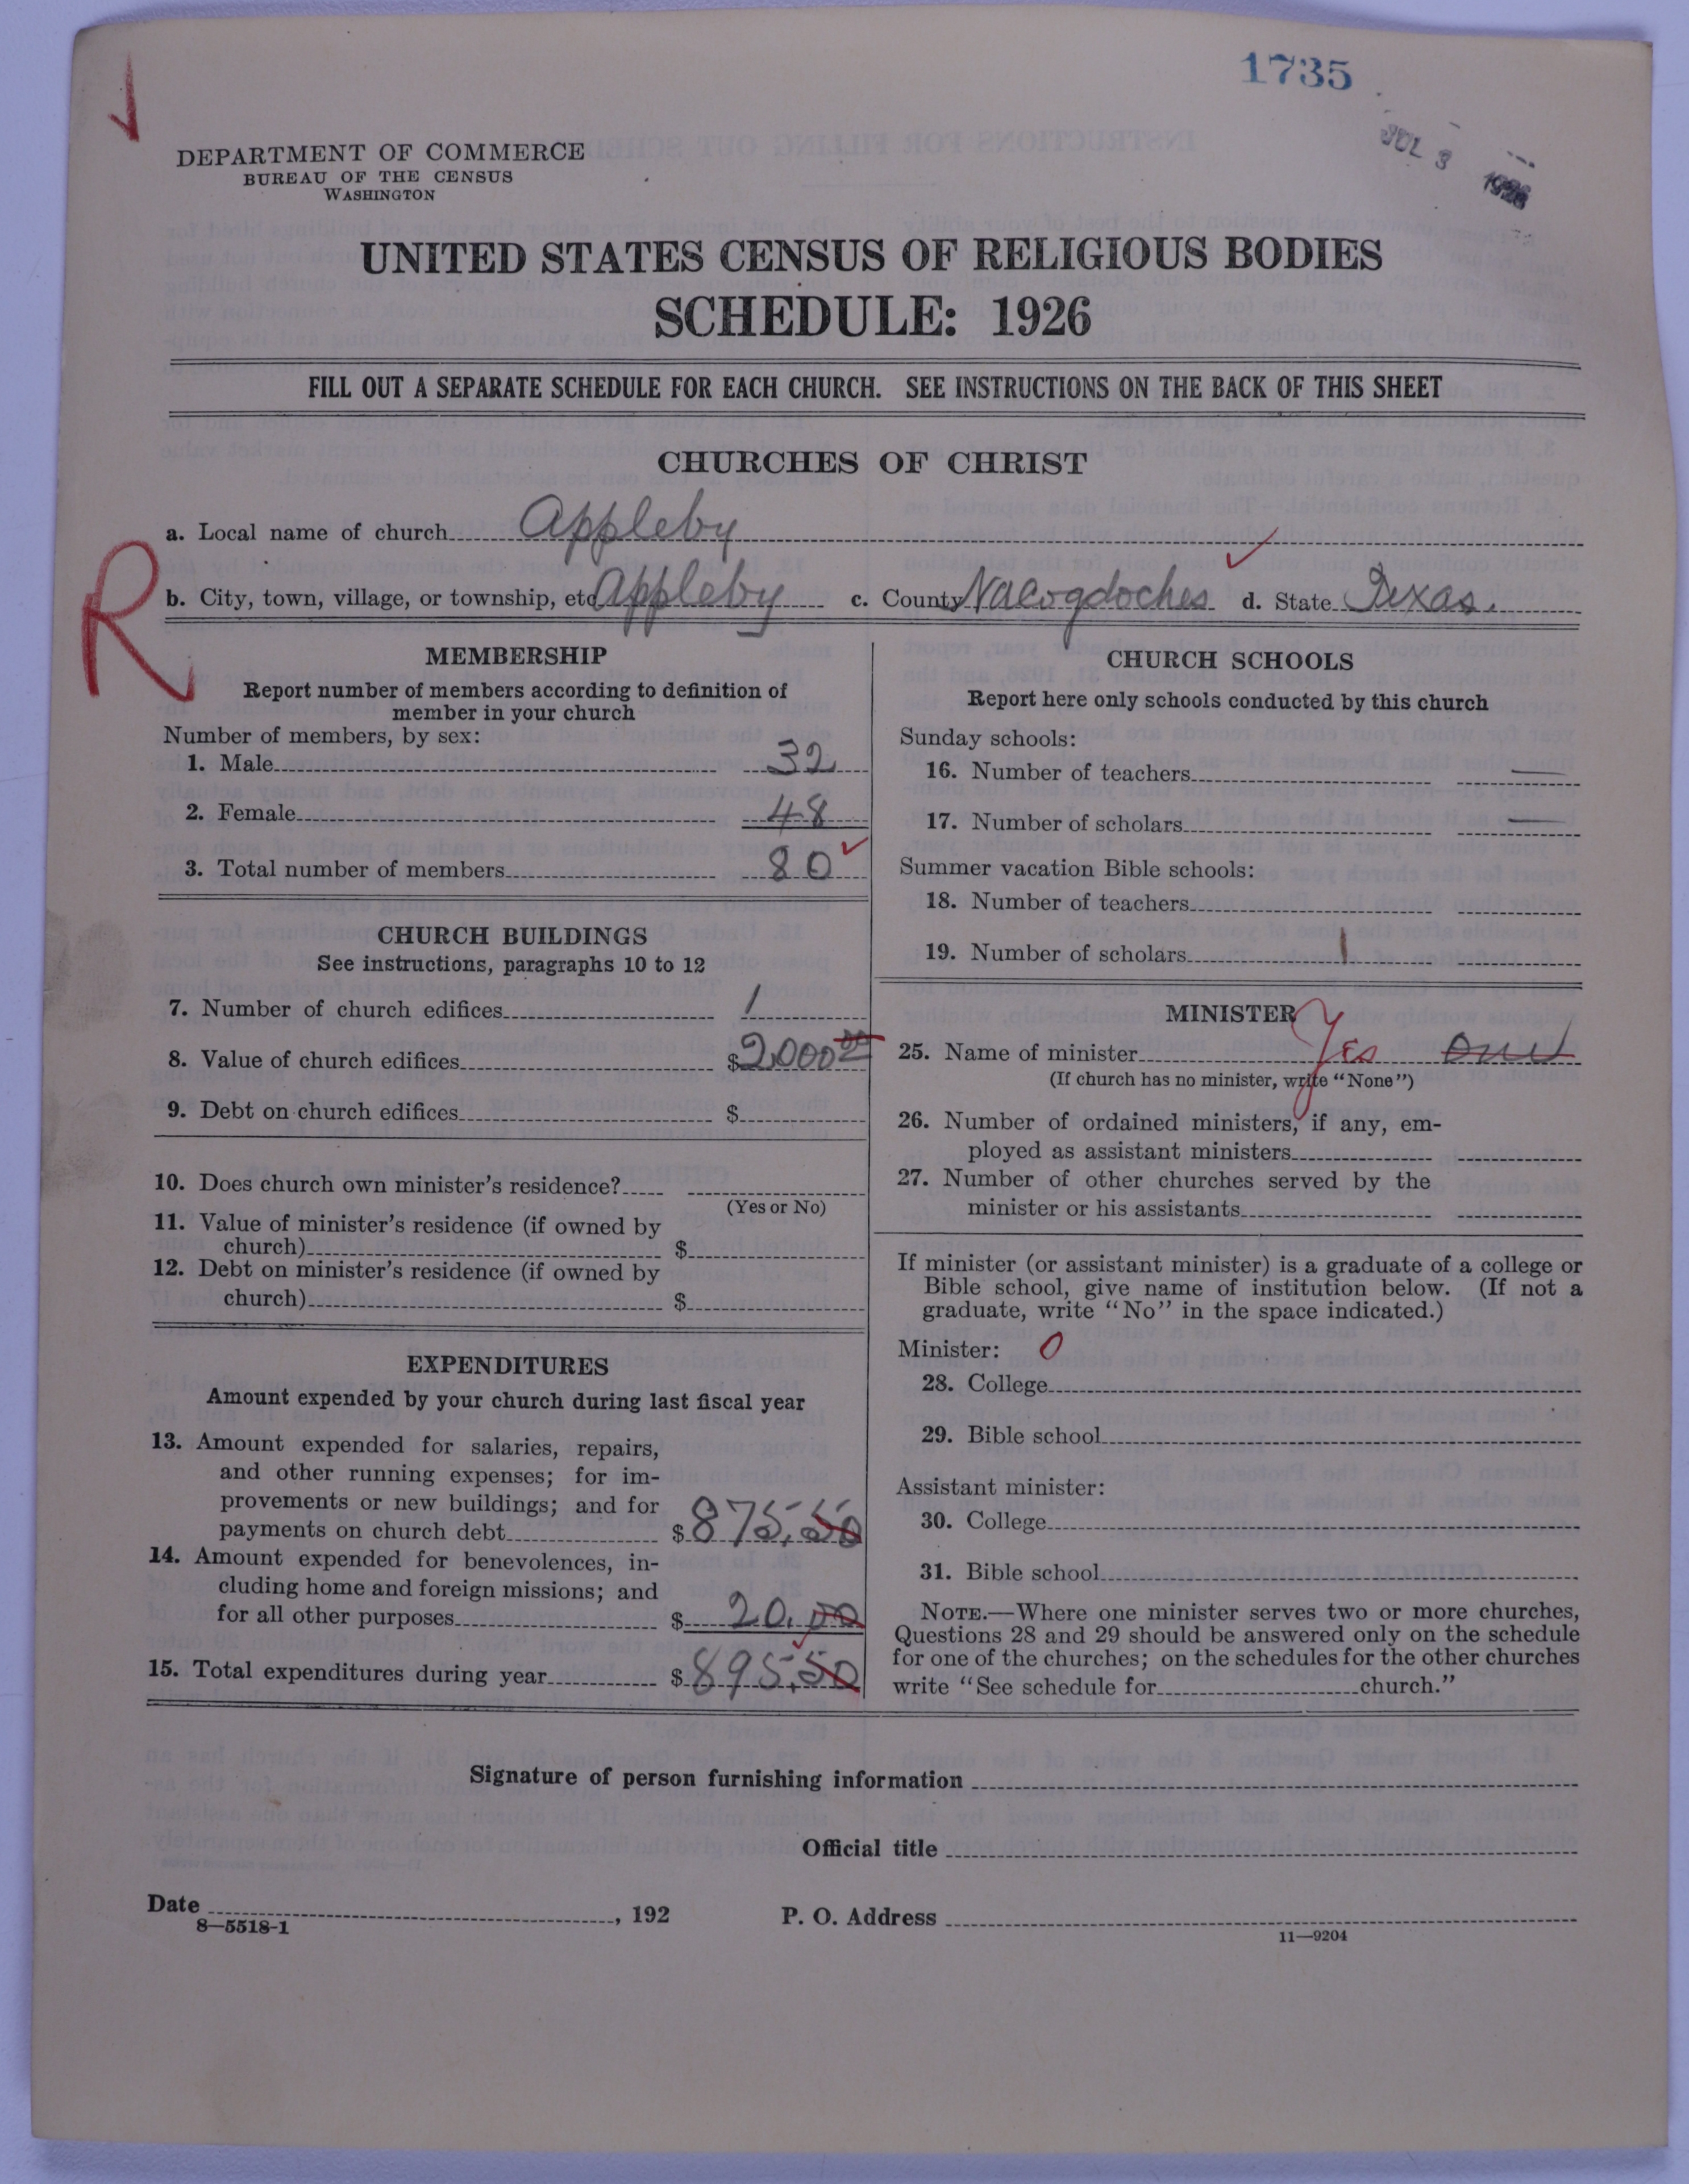 1735
JUL 3 1926
DEPARTMENT OF COMMERCE
BUREAU OF THE CENSUS
WASHINGTON
UNITED STATES CENSUS OF RELIGIOUS BODIES
SCHEDULE: 1926
FILL OUT A SEPARATE SCHEDULE FOR EACH CHURCH. SEE INSTRUCTIONS ON THE BACK OF THIS SHEET
CHURCHES OF CHRIST
a. Local name of church Appleby
R
b. City, town, village, or township, etc Appleby c. County Nacogdoches d. State Texas.
MEMBERSHIP
Report number of members according to definition of
member in your church
Number of members, by sex:
1. Male 32
2. Female 48
3. Total number of members 80
CHURCH BUILDINGS
See instructions, paragraphs 10 to 12
7. Number of church edifices 1
8. Value of church edifices $2,000 00
9. Debt on church edifices $
10. Does church own minister's residence?
(Yes or No)
11. Value of minister's residence (if owned by
church) $
12. Debt on minister's residence (if owned by
church) $
EXPENDITURES
Amount expended by your church during last fiscal year
13. Amount expended for salaries, repairs,
and other running expenses; for im-
provements or new buildings; and for
payments on church debt $ 875.50
14. Amount expended for benevolences, in-
cluding home and foreign missions; and
for all other purposes $ 20.00
15. Total expenditures during year $ 895.50
CHURCH SCHOOLS
Report here only schools conducted by this church
Sunday schools:
16. Number of teachers —
17. Number of scholars —
Summer vacation Bible schools:
18. Number of teachers
19. Number of scholars 1
MINISTER
25. Name of minister Yes one
(If church has no minister, write "None")
26. Number of ordained ministers, if any, em-
ployed as assistant ministers
27. Number of other churches served by the
minister or his assistants
If minister (or assistant minister) is a graduate of a college or
Bible school, give name of institution below. (If not a
graduate, write "No" in the space indicated.)
Minister: 0
28. College
29. Bible school
Assistant minister:
30. College
31. Bible school
NOTE.—Where one minister serves two or more churches,
Questions 28 and 29 should be answered only on the schedule
for one of the churches; on the schedules for the other churches
write "See schedule for church."
Signature of person furnishing information
Official title
Date , 192 P. O. Address
8—5518-1
11—9204